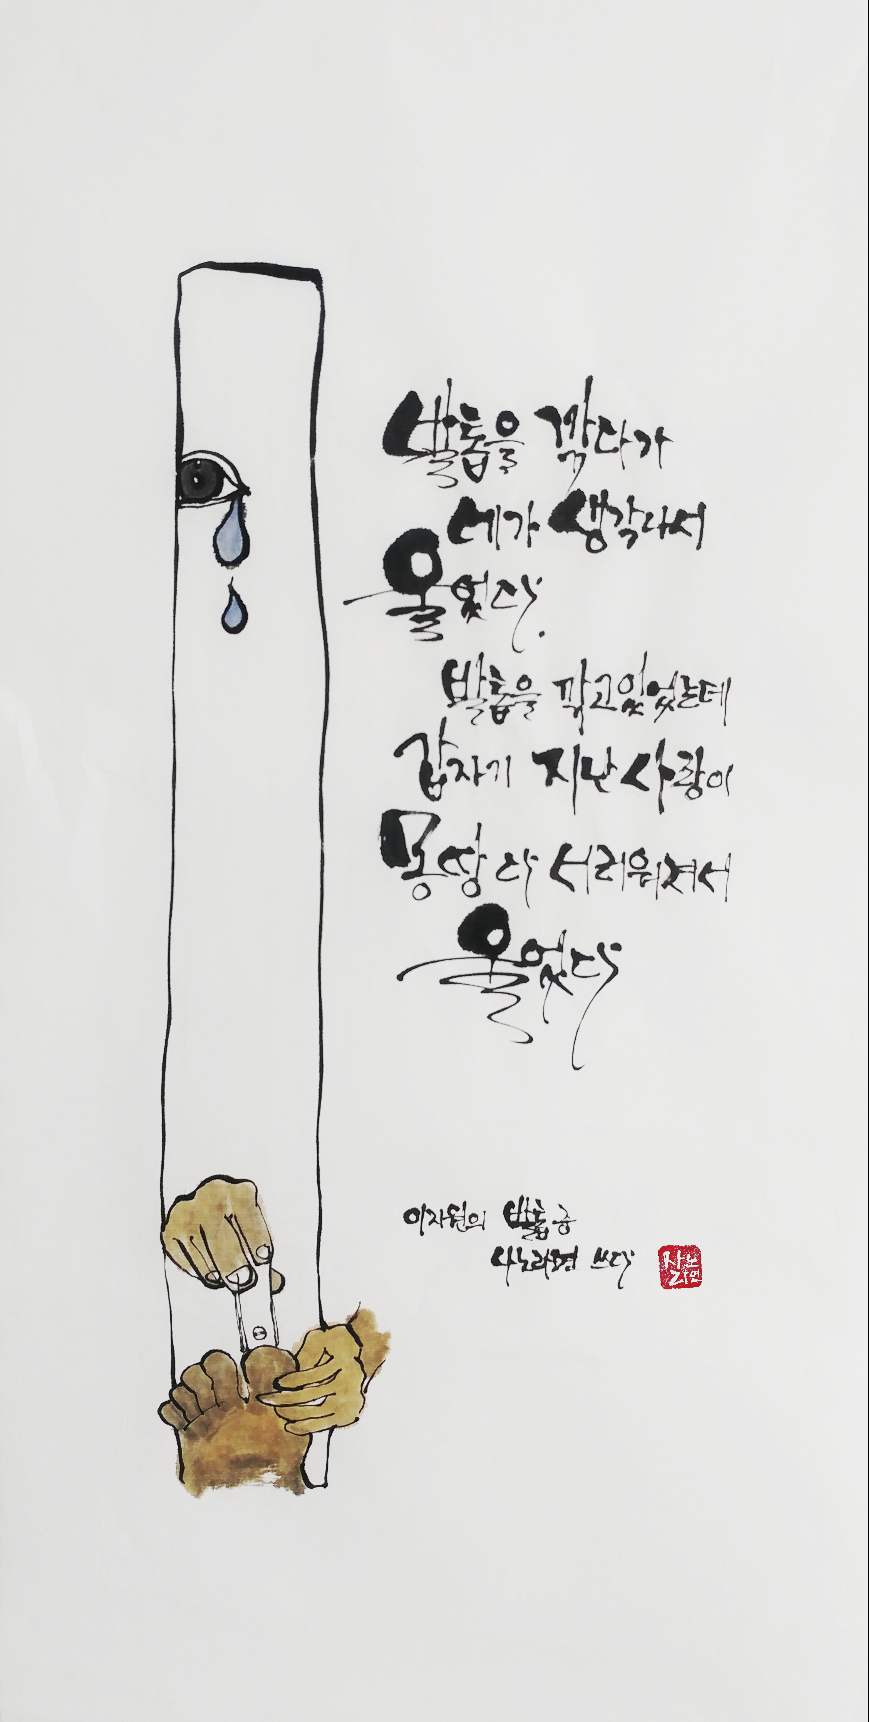 발톱을 깎다가
네가 생각나서
울었다.
발톱을 깎고있었는데
갑자기 지난 사랑이
몽땅 다 서러워져서
울었다
이자원의 발톱 중
사노라면 쓰다
사노라면